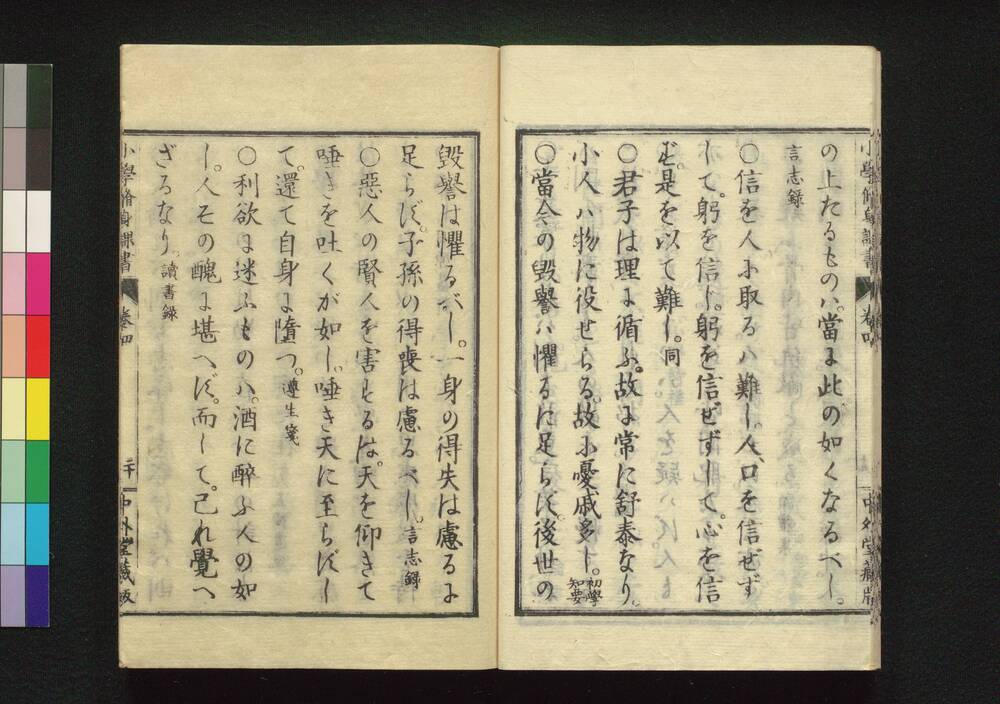 の上たるものハ。當に此の如くなるべし。
言志録
○信を人に取るハ難し。人、口を信ぜず
して。躬を信し。躬を信ぜずして。心を信
ず。是を以て難し。同
○君子は理に循ふ。故に常に舒泰なり。
小人ハ物に役せらる。故に憂戚多し。初學知要
○當今の毀譽ハ懼るに足らず。後世の
小學脩身課書 卷四 二十 中外堂藏版
毀譽は懼るべし。一身の得失は慮るに
足らず。子孫の得喪は慮るべし。言志録
○惡人の賢人を害するは。天を仰きて
唾きを吐くが如し。唾き天に至らずし
て。還て自身に墮つ。遵生箋
○利欲に迷ふものハ。酒に醉ふ人の如
し。人その醜に堪へず。而して。己れ覺へ
ざるなり。讀書録
小學脩身課書 卷四 二十 中外堂藏版